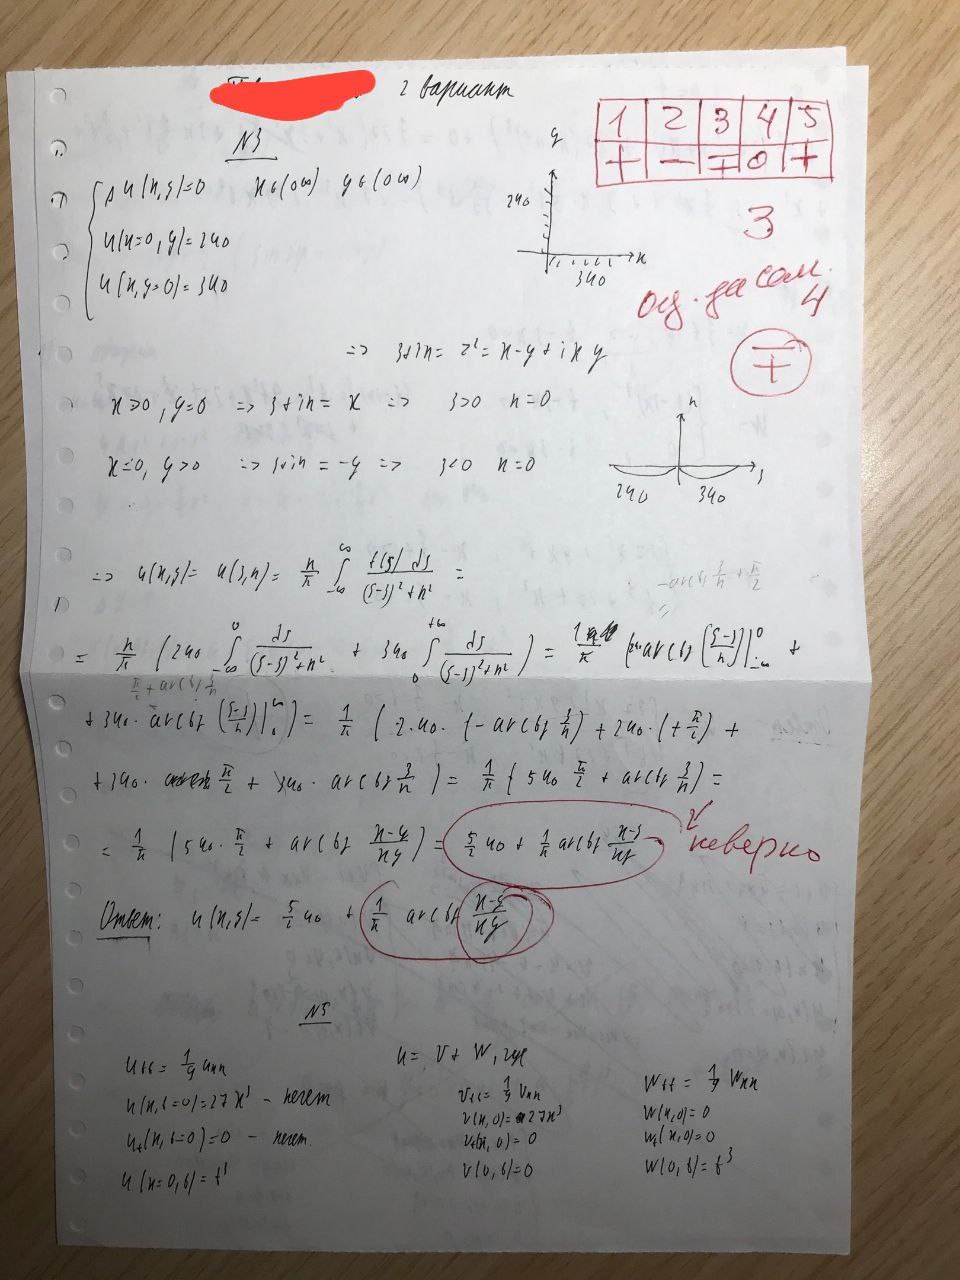 2 вариант
1 2 3 4 5
+ − ∓ 0 +
3
оц. за сем.
4
∓
N3
Δ u(x,y)=0 x∈(0∞) y∈(0∞)
u(x=0,y)=2u₀
u(x,y=0)=3u₀
y
2u₀
x
3u₀
=> ξ+iη = z² = x-y+ixy
x≥0, y=0 => ξ+iη = x => ξ>0 η=0
x≤0, y>0 => ξ+iη = -y => ξ<0 η=0
η
ξ
2u₀ 3u₀
=> u(x,y) = u(ξ,η) = η/π ∫_{-∞}^{∞} f(ς) dς / ((ς-ξ)²+η²) =
-arctg ξ/η + π/2
= η/π (2u₀ ∫_{-∞}^{0} dς / ((ς-ξ)²+η²) + 3u₀ ∫_{0}^{+∞} dς / ((ς-ξ)²+η²)) = 1/π (2u₀ arctg ((ς-ξ)/η)|_{-∞}^{0} +
π/2 + arctg ξ/η
+ 3u₀· arctg ((ς-ξ)/η)|_{0}^{∞}) = 1/π (2·u₀·(-arctg ξ/η) + 2u₀·(+π/2) +
+ 3u₀· π/2 + 3u₀· arctg ξ/η) = 1/π (5u₀ π/2 + arctg ξ/η) =
= 1/π (5u₀· π/2 + arctg (x-y)/(xy)) = 5/2 u₀ + 1/π arctg (x-y)/(xy)
неверно
Ответ: u(x,y) = 5/2 u₀ + 1/π arctg (x-y)/(xy)
N5
u_tt = 1/9 u_xx
u(x,t=0)=27x³ - нечет
u_t(x,t=0)=0 - нечет.
u(x=0,t)=t³
u = v + w, где
v_tt = 1/9 v_xx
v(x,0)=27x³
v_t(x,0)=0
v(0,t)=0
w_tt = 1/9 w_xx
w(x,0)=0
w_t(x,0)=0
w(0,t)=t³